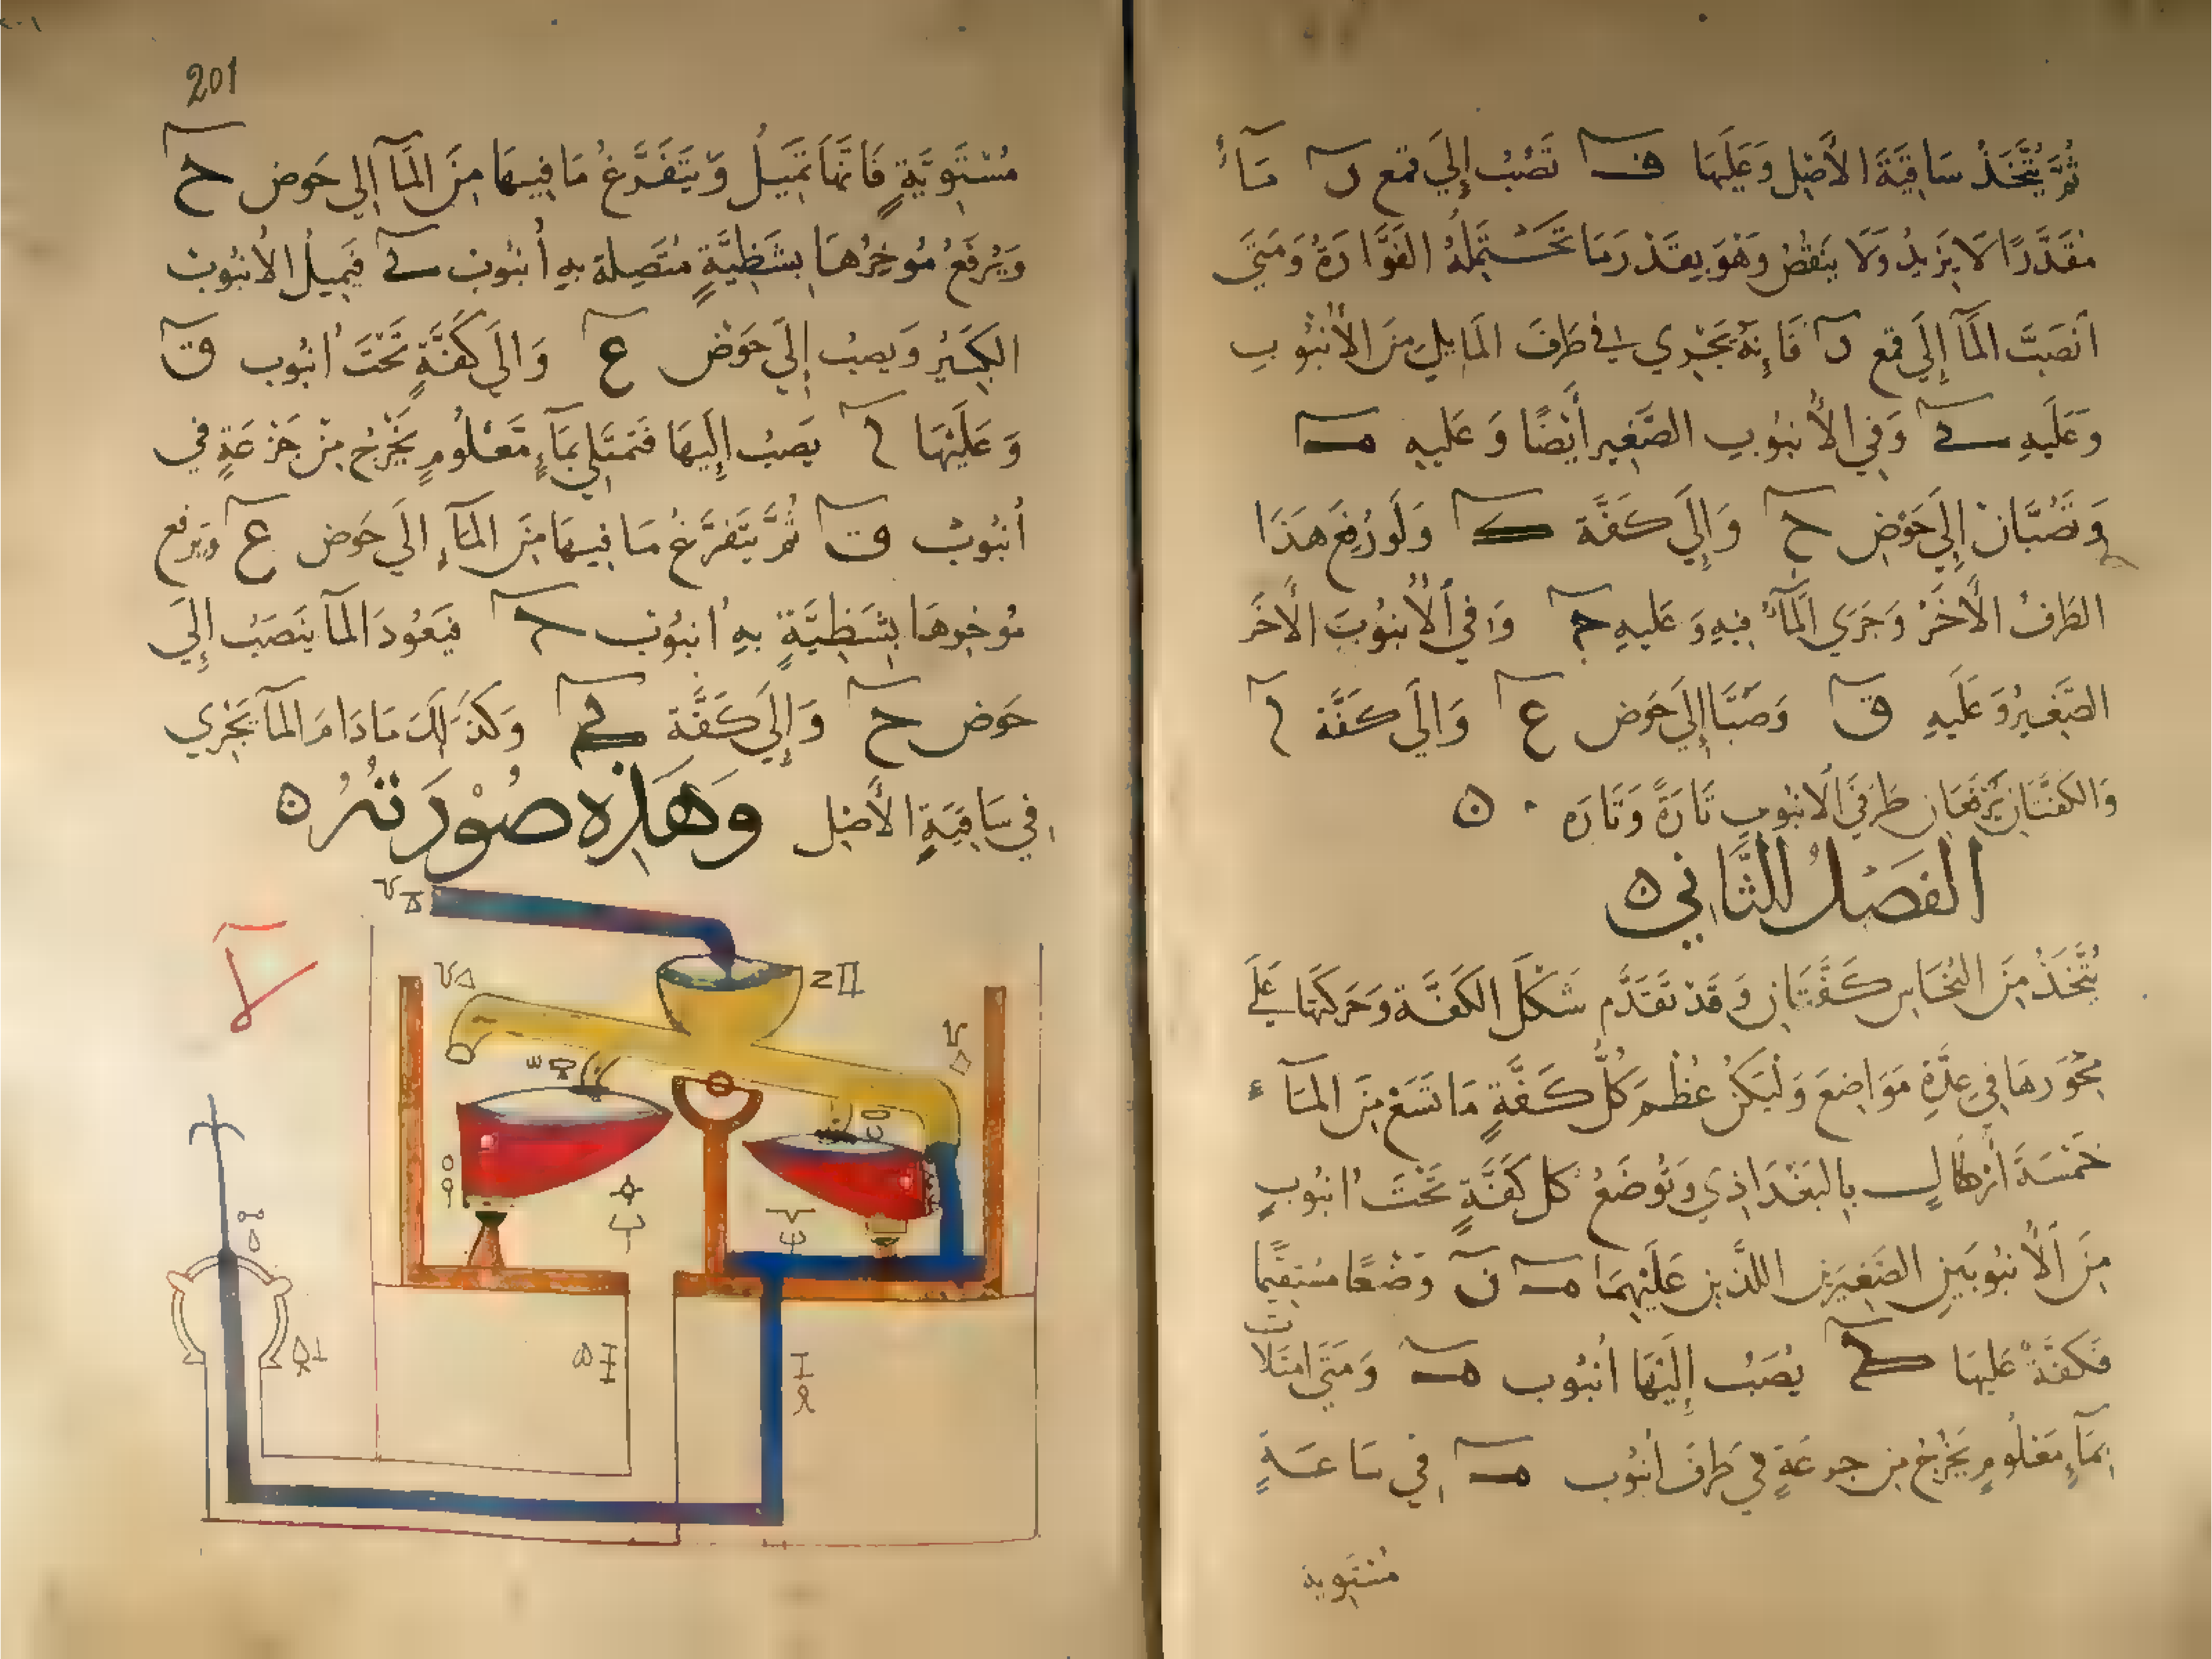 ثُمَّ يُتَّخَذُ سَاقِيَةَ الأَصْلِ وَعَلَيْهَا ف تَصُبُّ إِلَى قمع ر مَاءً
مُقَدَّرًا لَا يَزِيدُ وَلَا يَنْقُصُ وَهُوَ بِقَدْرِ مَا تَحْتَمِلُهُ الفَوَّارَةُ وَمَتَى
انْصَبَّ المَآ إِلَى قمع ر فَإِنَّهُ يَجْرِي فِي طَرَفِ المَايِلِ مِنَ الأُنْبُوبِ
وَعَلَيهِ وَفِي الأُنبُوبِ الصَّغِيرِ أَيْضًا وَعَلَيهِ
وَتَصُبَّانِ إِلَى حَوْضِ ح وَإِلَى كَفَّة ك وَلَو رُفِعَ هَذَا
الطرَفُ الآخَرُ وَجَرَى المَآءُ فِيهِ وَعَليهِ وَفِي الأُنبُوبِ الآخَر
الصَّغِيرُ وَعَلَيهِ ق وَصَبَّا إِلَى حَوض ع وَإِلَى كَفَّة ل
وَالكَفَّتَانِ يَرْفَعَانِ طَرَفَيِ الأُنبُوبِ تَارَةً وَتَارَه ن
الفَصْلُ الثَّانِي ن
يُتَّخَذُ مِنَ النُّحَاسِ كَفَّتَانِ وَقَدْ تَقَدَّم شَكْلُ الكَفَّة وَحَرَكَتهَا عَلَى
مِحْوَرهَا فِي عِدَّةِ مَوَاضِعَ وَلْيَكُنْ عُظْم كُلّ كَفَّةٍ مَا تَسَعُ مِنَ المَآء
خَمْسَةَ أَرْطَالٍ بِالبَغْدَاذِي وَتُوضَعُ كُل كَفَّةٍ تَحْتَ أُنبُوبِ
مِنَ الأُنبُوبَيْنِ الصَّغِيرَيْنِ اللَّذَيْنِ عَلَيْهِمَا وَضْعًا مُسْتَقِيمًا
فَكفَّةٌ عَلَيهَا يُصَبُّ إِلَيْهَا أُنْبُوب وَمَتَى امْتَلأت
بِمَآءٍ مَعْلُومٍ يَخْرُجُ مِن جزعَةٍ فِي طَرَف أُنبُوب فِي سَاعَةٍ
مُسْتَوِية
201
مُسْتَوِيَّةٍ فَإِنَّهَا تَمِيلُ وَيَتَفَرَّغُ مَا فِيهَا مِنَ المَآ إِلَى حَوض ح
وَيُرفَعُ مُوخرُهَا بِشَظِيَّةٍ مُتَّصِلة بِهِ أُنبُوب فَيَمِيلُ الأُنبُوب
الكَبِيرُ وَيصبُّ إِلَى حَوْض ع وَإِلَى كَفَّةٍ تَحْتَ أُنبُوب ق
وَعَلَيْهَا ل يَصبُّ إِلَيهَا فَتَمتَلي بِمَآءٍ مَعْلُومٍ يَخْرُجُ مِنْ جَزعَةٍ فِي
أُنبُوب ق ثُمَّ يَتَفَرَّغُ مَا فِيهَا مِنَ المَآءِ إِلَى حَوض ع وَيَرفع
مُوخرهَا بِشَظِيَّةٍ بِهِ أُنبُوب فَيَعُودَ المَآ يَنصَبُّ إِلَى
حَوض ح وَإِلَى كَفَّة وَكَذَلِكَ مَادَامَ المَآ يَجْرِي
فِي سَاقِيَةِ الأَصْلِ وَهَذِهِ صُورَتُهُ ن